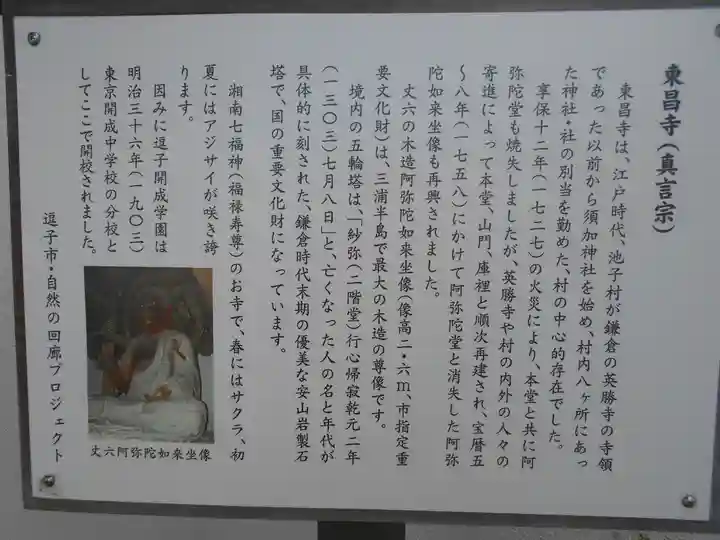 東昌寺(真言宗)
東昌寺は、江戸時代、池子村が鎌倉の英勝寺の寺領
であった以前から須加神社を始め、村内八ヶ所にあっ
た神社・社の別当を勤めた、村の中心的存在でした。
享保十二年(一七二七)の火災により、本堂と共に阿
弥陀堂も焼失しましたが、英勝寺や村の内外の人々の
寄進によって本堂、山門、庫裡と順次再建され、宝暦五
〜八年(一七五八)にかけて阿弥陀堂と消失した阿弥
陀如来坐像も再興されました。
丈六の木造阿弥陀如来坐像(像高二・六m、市指定重
要文化財)は、三浦半島で最大の木造の尊像です。
境内の五輪塔は、「紗弥(二階堂)行心帰寂乾元二年
(一三〇三)七月八日」と、亡くなった人の名と年代が
具体的に刻された、鎌倉時代末期の優美な安山岩製石
塔で、国の重要文化財になっています。
湘南七福神(福禄寿尊)のお寺で、春にはサクラ、初
夏にはアジサイが咲き誇
ります。
因みに逗子開成学園は
明治三十六年(一九〇三)
東京開成中学校の分校と
してここで開校されました。
逗子市・自然の回廊プロジェクト
丈六阿弥陀如来坐像